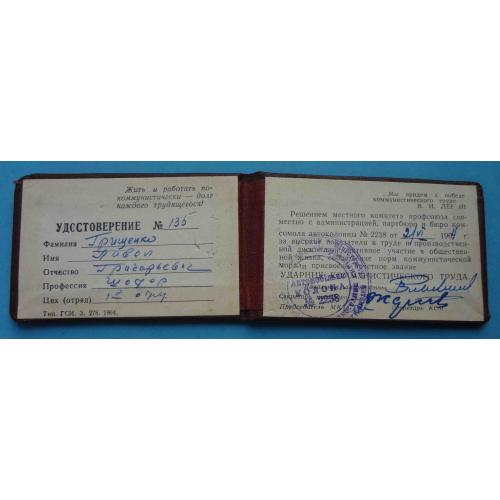 Жить и работать по-
коммунистически — долг
каждого трудящегося!
УДОСТОВЕРЕНИЕ № 135
Фамилия Грищенко
Имя Павел
Отчество Григорьевич
Профессия шофер
Цех (отряд)
Тип. ГСИ. З. 278. 1964.
Мы придем к победе
коммунистического труда
В. И. ЛЕНИН
Решением местного комитета профсоюза сов-
местно с администрацией, партбюро и бюро ком-
сомола автоколонны № 2238 от 196
за высокие показатели в труде и производственной
дисциплине, активное участие в обществен-
ной жизни, соблюдение норм коммунистической
морали присвоено почетное звание
УДАРНИК КОММУНИСТИЧЕСКОГО ТРУДА
Секретарь
Председатель МК Секретарь КСМ